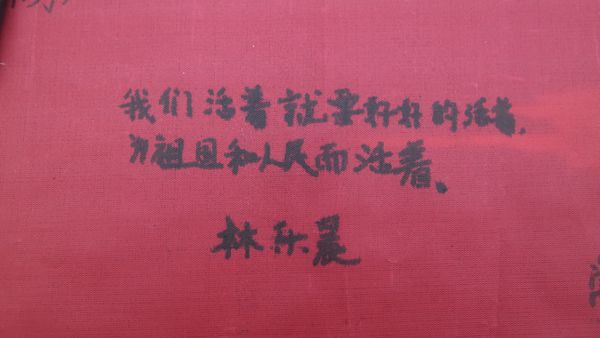 我们活着就要好好的活着,
为祖国和人民而活着、
林乐晨